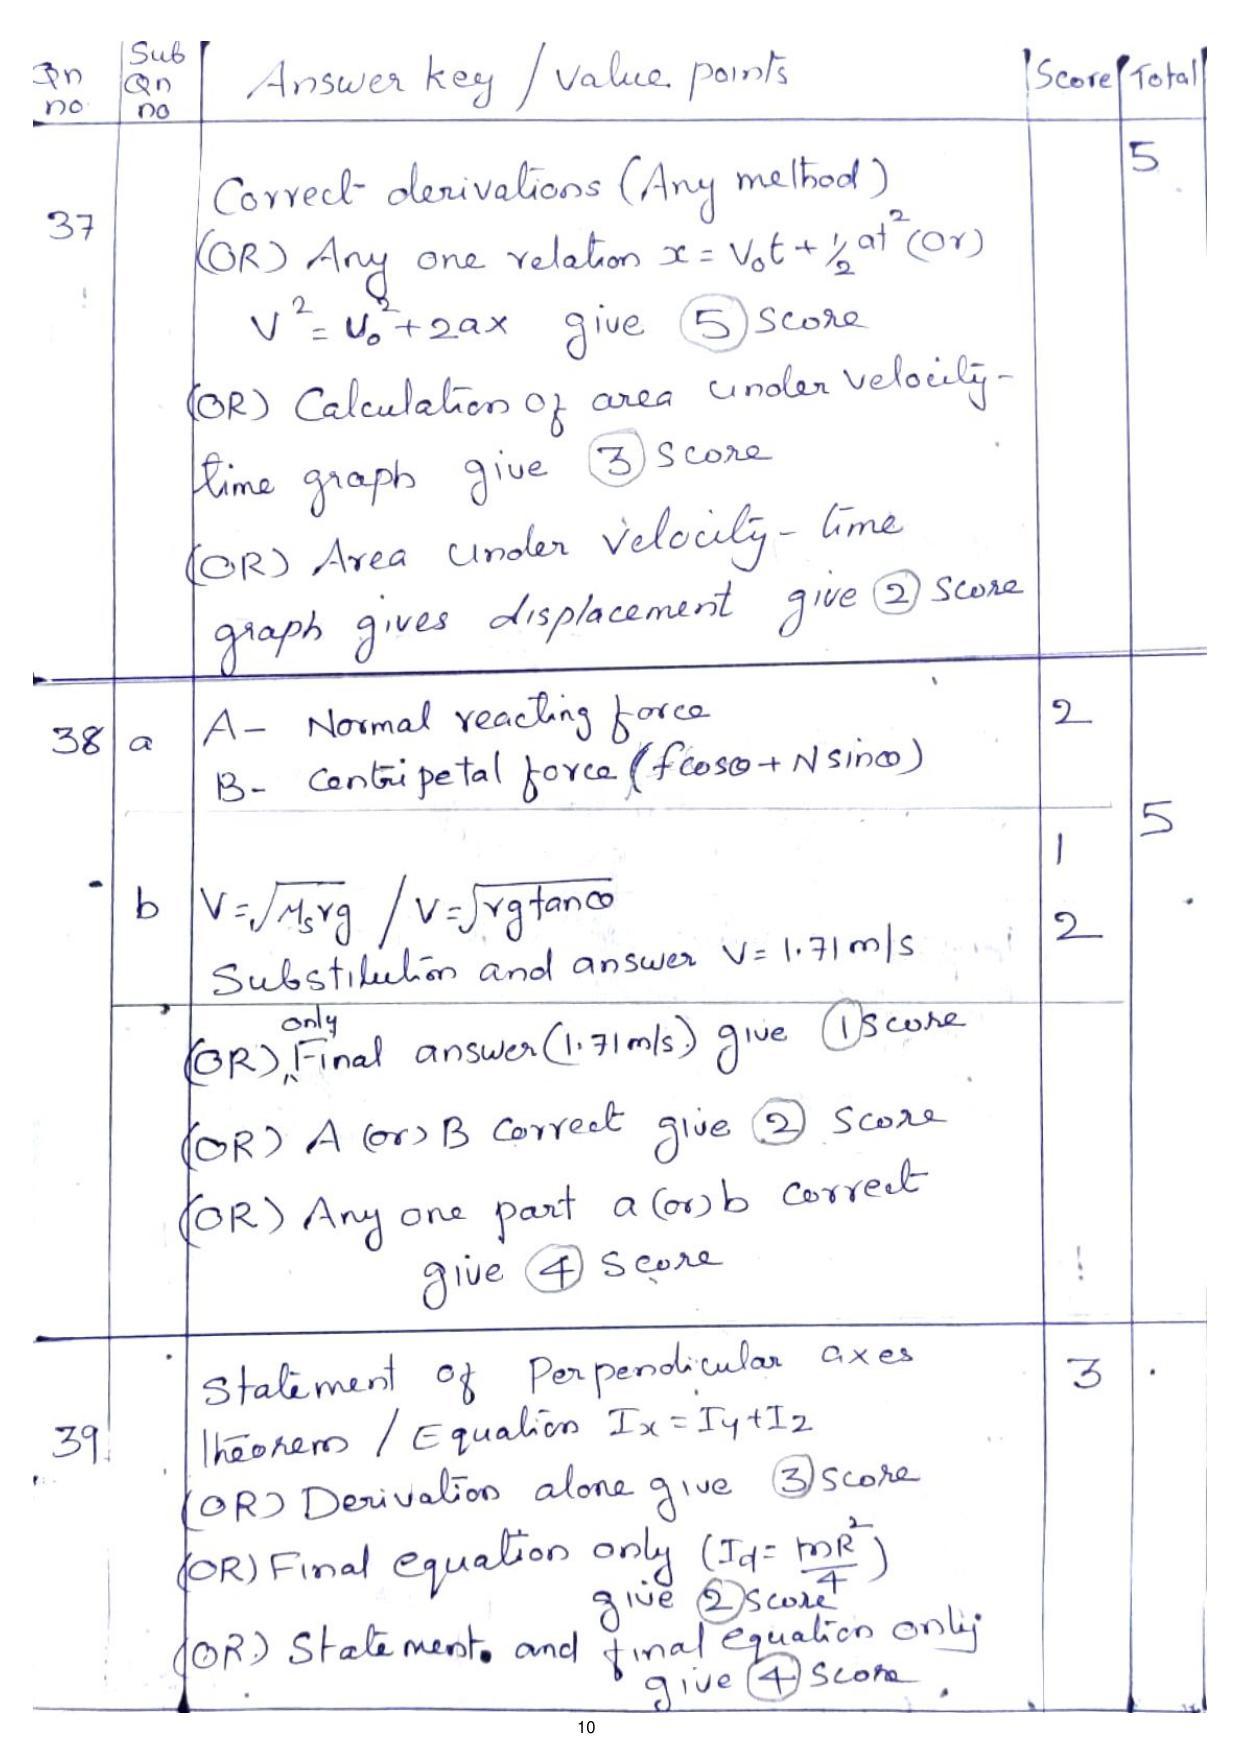 Qn no | Sub Qn no | Answer key / value points | Score | Total
37 | Correct derivations (Any method) | 5
(OR) Any one relation x = V₀t + ½ at² (or)
V² = V₀² + 2ax give 5 Score
(OR) Calculation of area under velocity-
time graph give 3 Score
(OR) Area under velocity-time
graph gives displacement give 2 Score
38 | a | A - Normal reacting force | 2
B - Centripetal force (fcosθ + N sinθ)
5
1
b | V = √μₛrg / V = √rg tanθ
2
Substitution and answer V = 1.71 m/s
(OR) only Final answer (1.71 m/s) give 1 Score
(OR) A (or) B Correct give 2 Score
(OR) Any one part a (or) b correct
give 4 Score
39 | Statement of Perpendicular axes | 3
theorem / Equation Ix = Iy + Iz
(OR) Derivation alone give 3 Score
(OR) Final equation only (Id = mR²/4)
give 2 Score
(OR) Statement and final equation only
give 4 Score
10